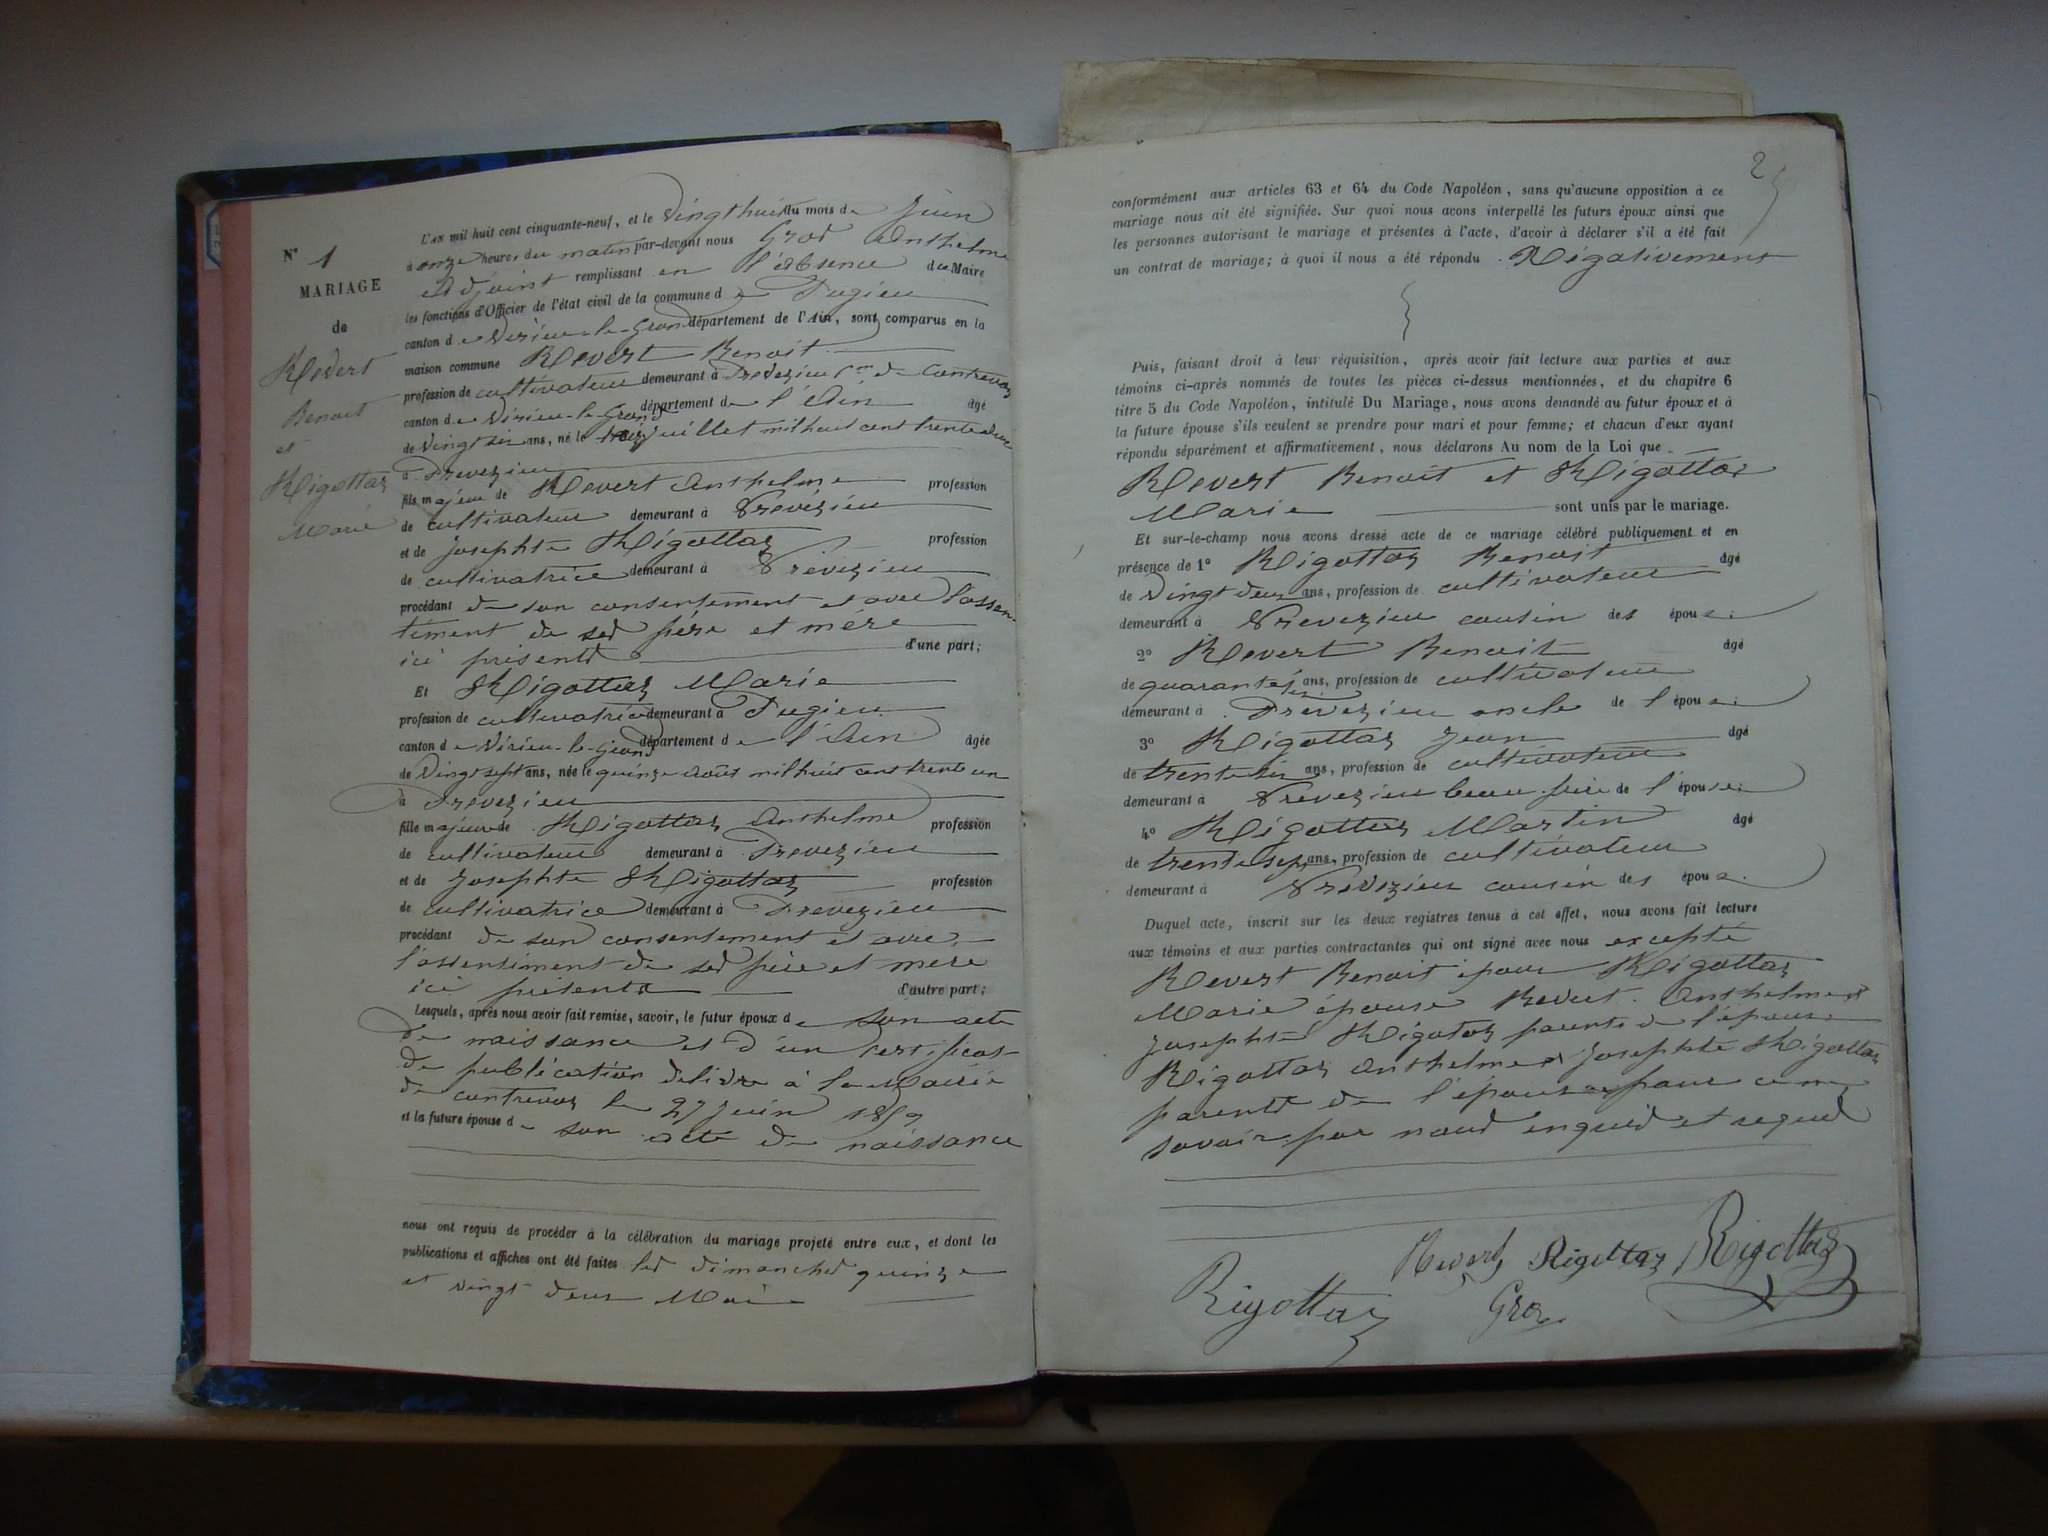 N° 1
MARIAGE
de
Revert
Benoit
et
Rigottaz
Marie
L'AN mil huit cent cinquante-neuf, et le Vingt huit du mois de Juin
à onze heures du matin par-devant nous Gros Anthelme
Adjoint remplissant en l'Absence du Maire
les fonctions d'Officier de l'état civil de la commune de Pugieu
canton de Virieu-le-Grand département de l'Ain, sont comparus en la
maison commune Revert Benoit
profession de cultivateur demeurant à Prevezieu Cne de Contrevoz
canton de Virieu-le-Grand département de l'Ain âgé
de Vingt six ans, né le juillet mil huit cent trente deux
à Prevezieu
fils majeur de Revert Anthelme profession
de cultivateur demeurant à Prévézieu
et de Josephte Rigottaz profession
de cultivatrice demeurant à Prévezieu
procédant de son consentement et avec l'assen
timent de ses père et mère
ici présents d'une part;
Et Rigottaz Marie
profession de cultivatrice demeurant à Pugieu
canton de Virieu-le-Grand département de l'Ain âgée
de Vingt sept ans, née le quinze Août mil huit cent trente un
à Prevezieu
fille majeure de Rigottaz Anthelme profession
de cultivateur demeurant à Prevezieu
et de Josephte Rigottaz profession
de cultivatrice demeurant à Prevezieu
procédant de son consentement et avec
l'assentiment de ses père et mere
ici présents d'autre part;
Lesquels, après nous avoir fait remise, savoir, le futur époux de son acte
de naissance et d'un certificat
de publication delivre à la Mairie
de contrevoz le 27 juin 1859
et la future épouse de son acte de naissance
nous ont requis de procéder à la célébration du mariage projeté entre eux, et dont les
publications et affiches ont été faites les dimanches quinze
et vingt deux Mai
2
conformément aux articles 63 et 64 du Code Napoléon, sans qu'aucune opposition à ce
mariage nous ait été signifiée. Sur quoi nous avons interpellé les futurs époux ainsi que
les personnes autorisant le mariage et présentes à l'acte, d'avoir à déclarer s'il a été fait
un contrat de mariage; à quoi il nous a été répondu Négativement
Puis, faisant droit à leur réquisition, après avoir fait lecture aux parties et aux
témoins ci-après nommés de toutes les pièces ci-dessus mentionnées, et du chapitre 6
titre 5 du Code Napoléon, intitulé Du Mariage, nous avons demandé au futur époux et à
la future épouse s'ils veulent se prendre pour mari et pour femme; et chacun d'eux ayant
répondu séparément et affirmativement, nous déclarons Au nom de la Loi que
Revert Benoit et Rigottaz
Marie sont unis par le mariage.
Et sur-le-champ nous avons dressé acte de ce mariage célébré publiquement et en
présence de 1° Rigottaz Benoit âgé
de Vingt deux ans, profession de cultivateur
demeurant à Prevezieu cousin des épou
2° Revert Benoit âgé
de quarante ans, profession de cultivateur
demeurant à Prevezieu oncle de l'épou
3° Rigottaz Jean âgé
de trente six ans, profession de cultivateur
demeurant à Prevezieu beau frère de l'épouse
4° Rigottaz Martin âgé
de trente sept ans, profession de cultivateur
demeurant à Prevezieu cousin des épou
Duquel acte, inscrit sur les deux registres tenus à cet effet, nous avons fait lecture
aux témoins et aux parties contractantes qui ont signé avec nous excepté
Revert Benoit époux Rigottaz
Marie épouse Revert Anthelme et
Josephte Rigotaz parents de l'époux
Rigottaz Anthelme et Josephte Rigottaz
parents de l'épouse pour ce ne
savoir par nous enquis et requis
Revert Rigottaz Rigottaz
Rigottaz Gros